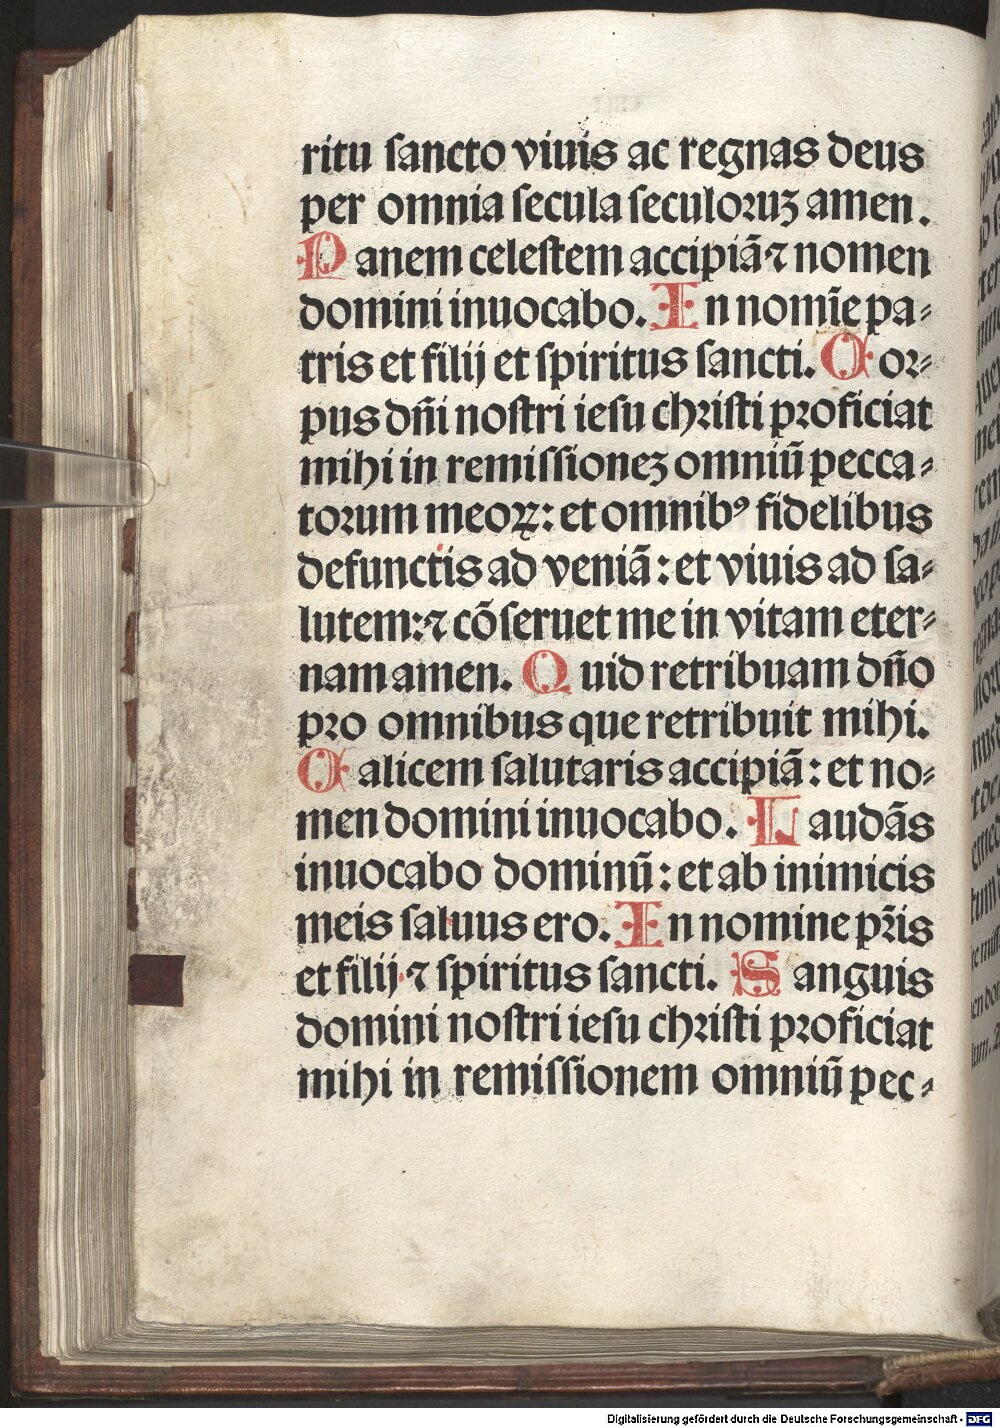 ritu sancto viuis ac regnas deus
per omnia secula seculoruꝫ amen.
Panem celestem accipiã ⁊ nomen
domini inuocabo. In nomĩe pa⸗
tris et filij et spiritus sancti. Cor⸗
pus dñi nostri iesu christi proficiat
mihi in remissioneꝫ omniũ pecca⸗
torum meoꝝ: et omnibꝰ fidelibus
defunctis ad veniã: et viuis ad sa⸗
lutem: ⁊ cõseruet me in vitam eter⸗
nam amen. Quid retribuam dño
pro omnibus que retribuit mihi.
Calicem salutaris accipiã: et no⸗
men domini inuocabo. Laudãs
inuocabo dominũ: et ab inimicis
meis saluus ero. In nomine pr̃is
et filij ⁊ spiritus sancti. Sanguis
domini nostri iesu christi proficiat
mihi in remissionem omniũ pec⸗
Digitalisierung gefördert durch die Deutsche Forschungsgemeinschaft - DFG